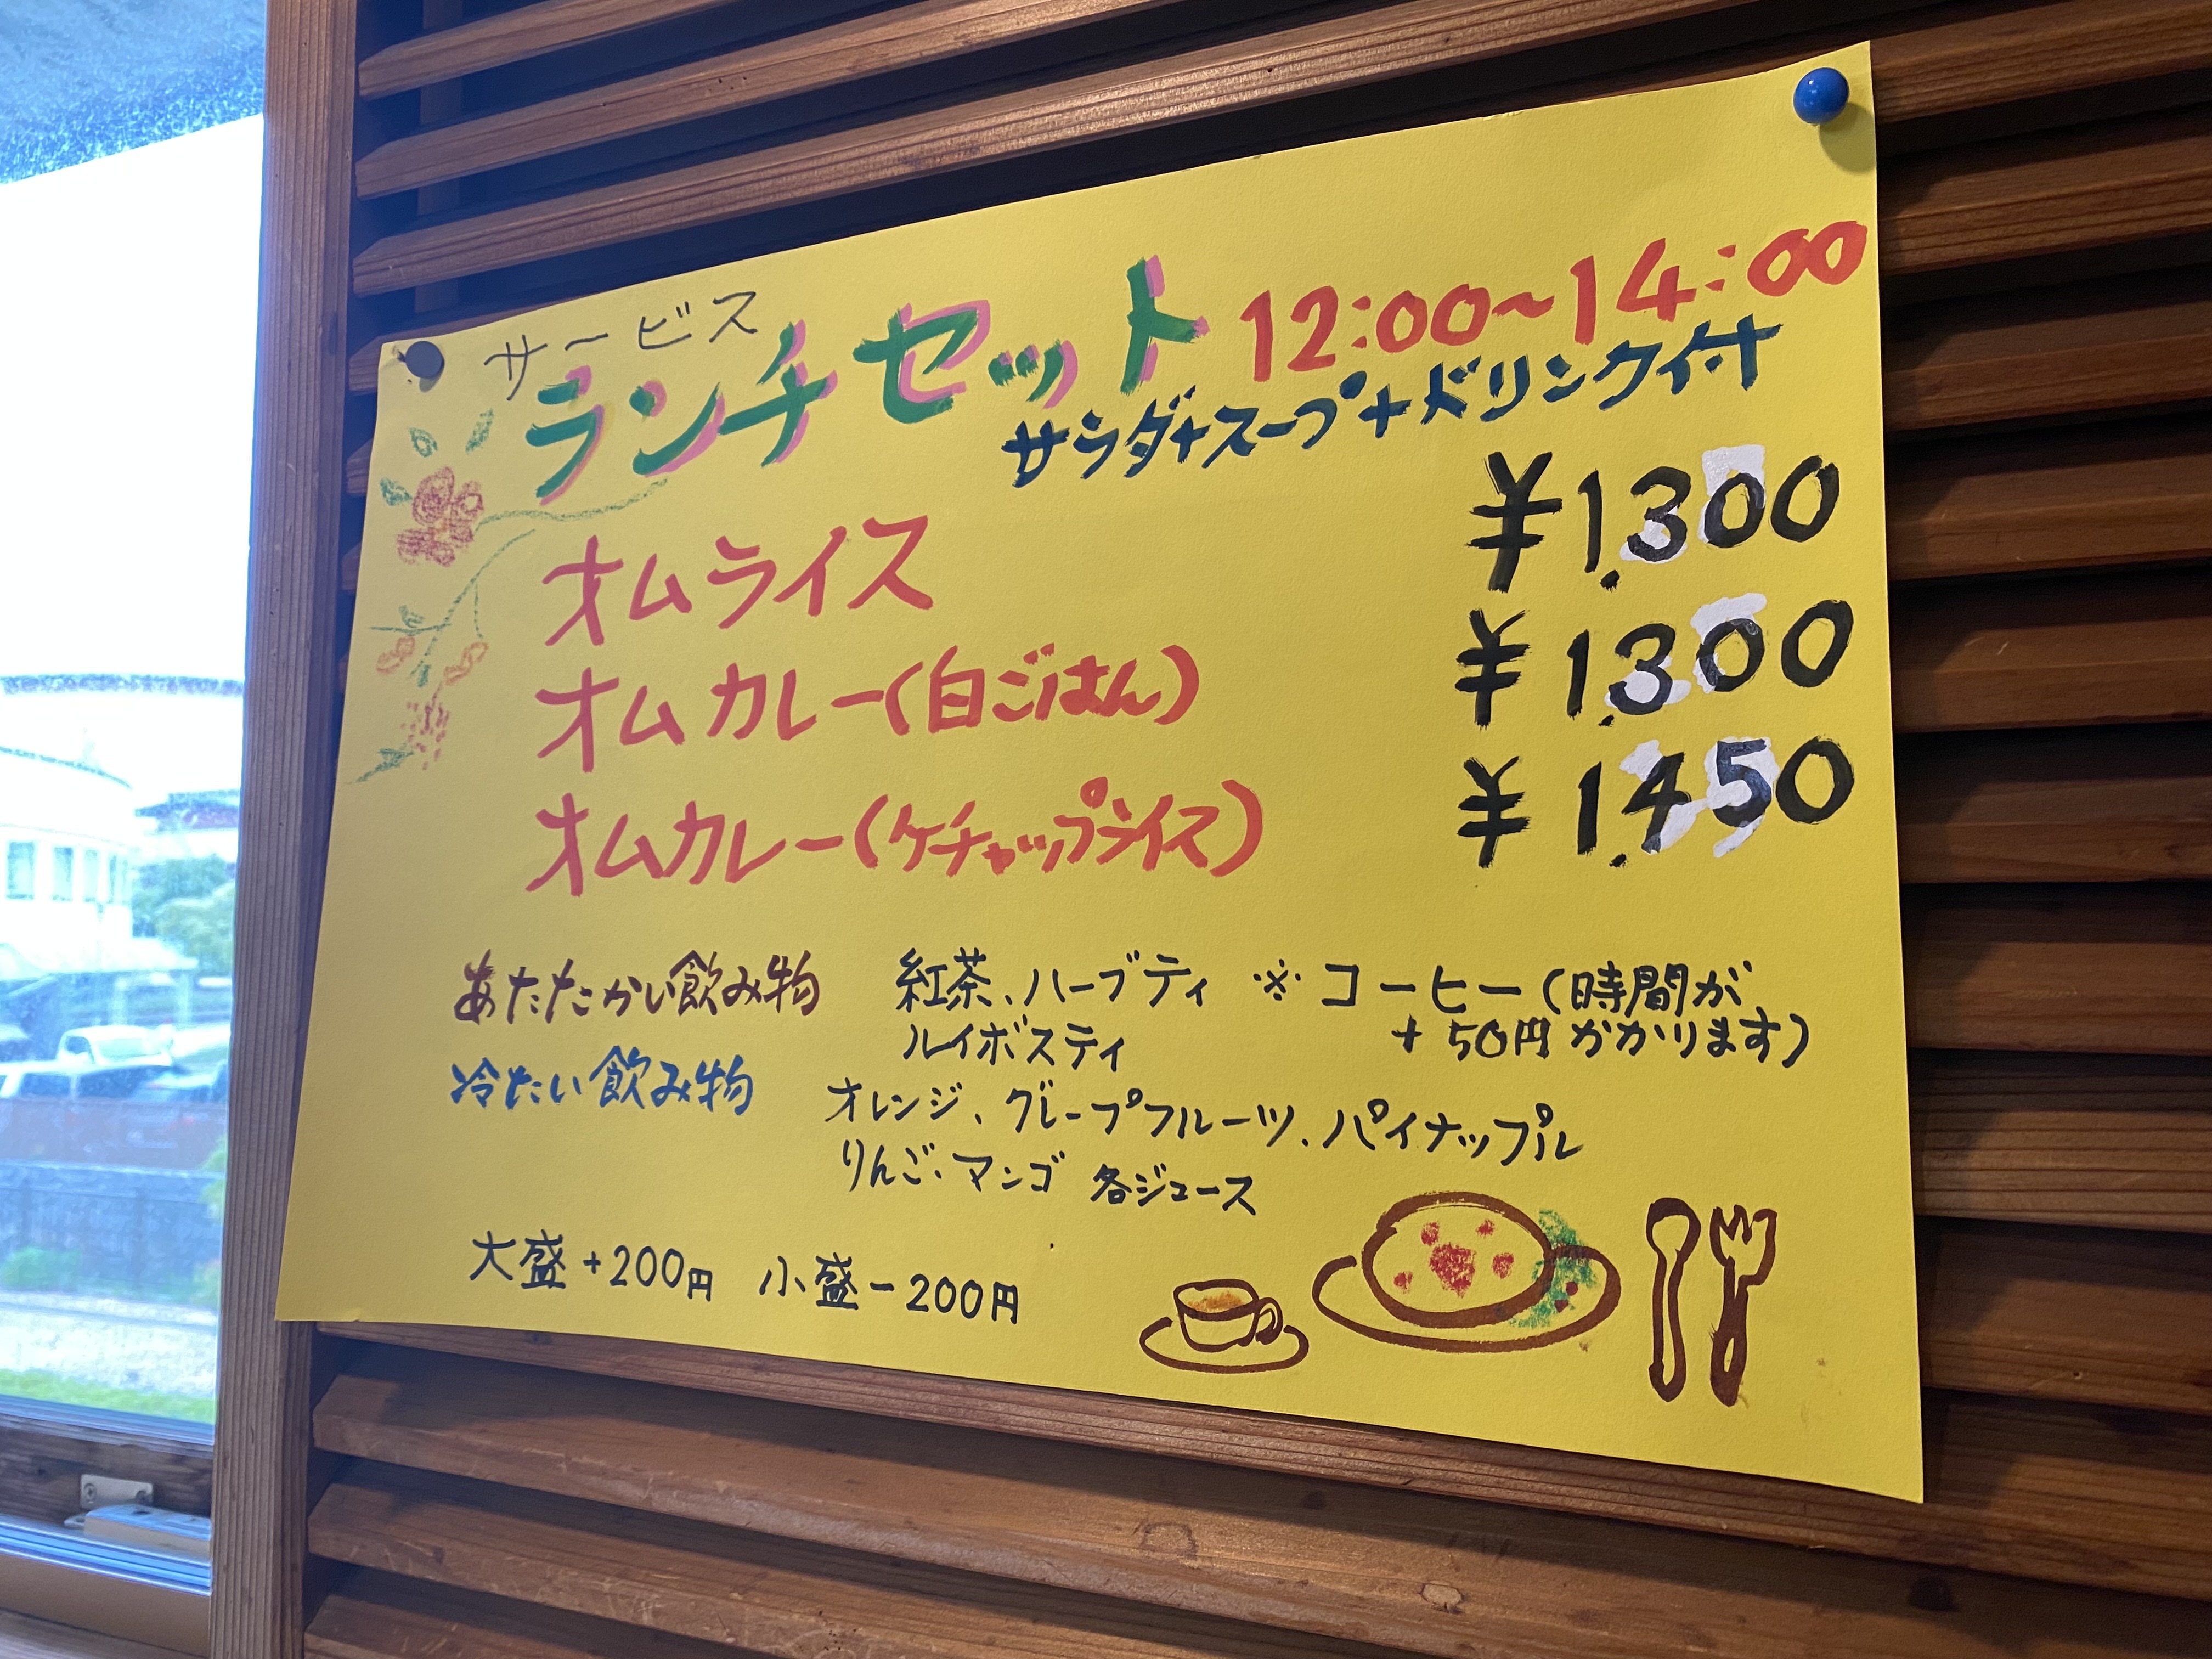 サービス
ランチセット 12:00~14:00
サラダ+スープ+ドリンク付
オムライス ¥1,300
オムカレー(白ごはん) ¥1,300
オムカレー(ケチャップライス) ¥1,450
あたたかい飲み物 紅茶、ハーブティ ※コーヒー(時間が
ルイボスティ +50円かかります)
冷たい飲み物 オレンジ、グレープフルーツ、パイナップル
りんご、マンゴ 各ジュース
大盛+200円 小盛-200円